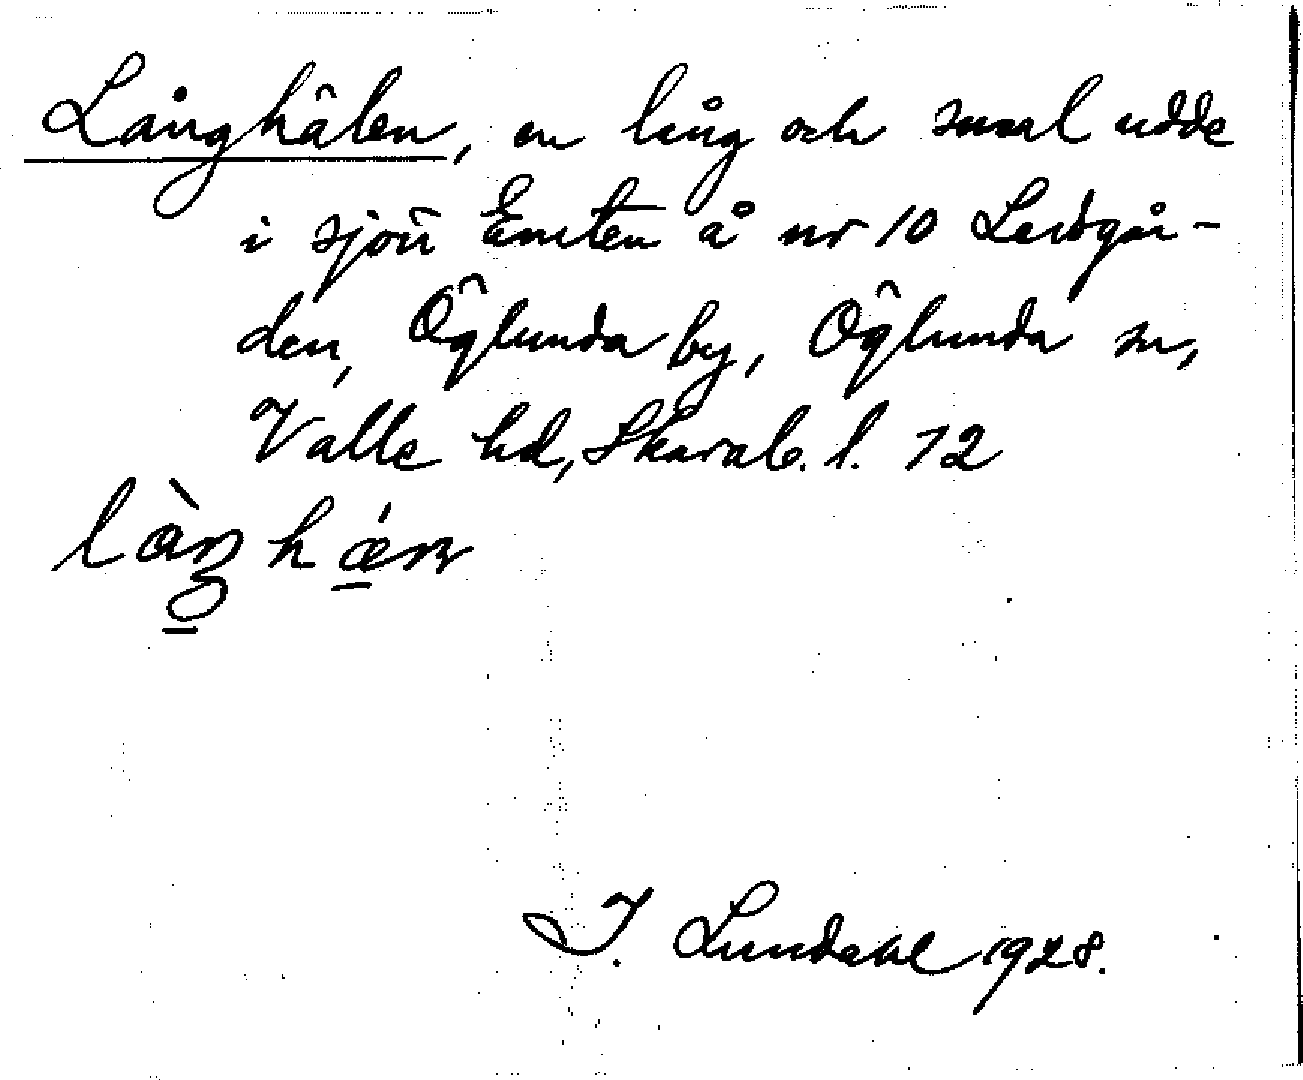 Långhâlen, en lång och smal udde
i sjön Emten å nr 10 Ledsgår-
den, Öglunda by, Öglunda sn,
Valle hd, Skarab. l. 72
I. Lundahl 1928.